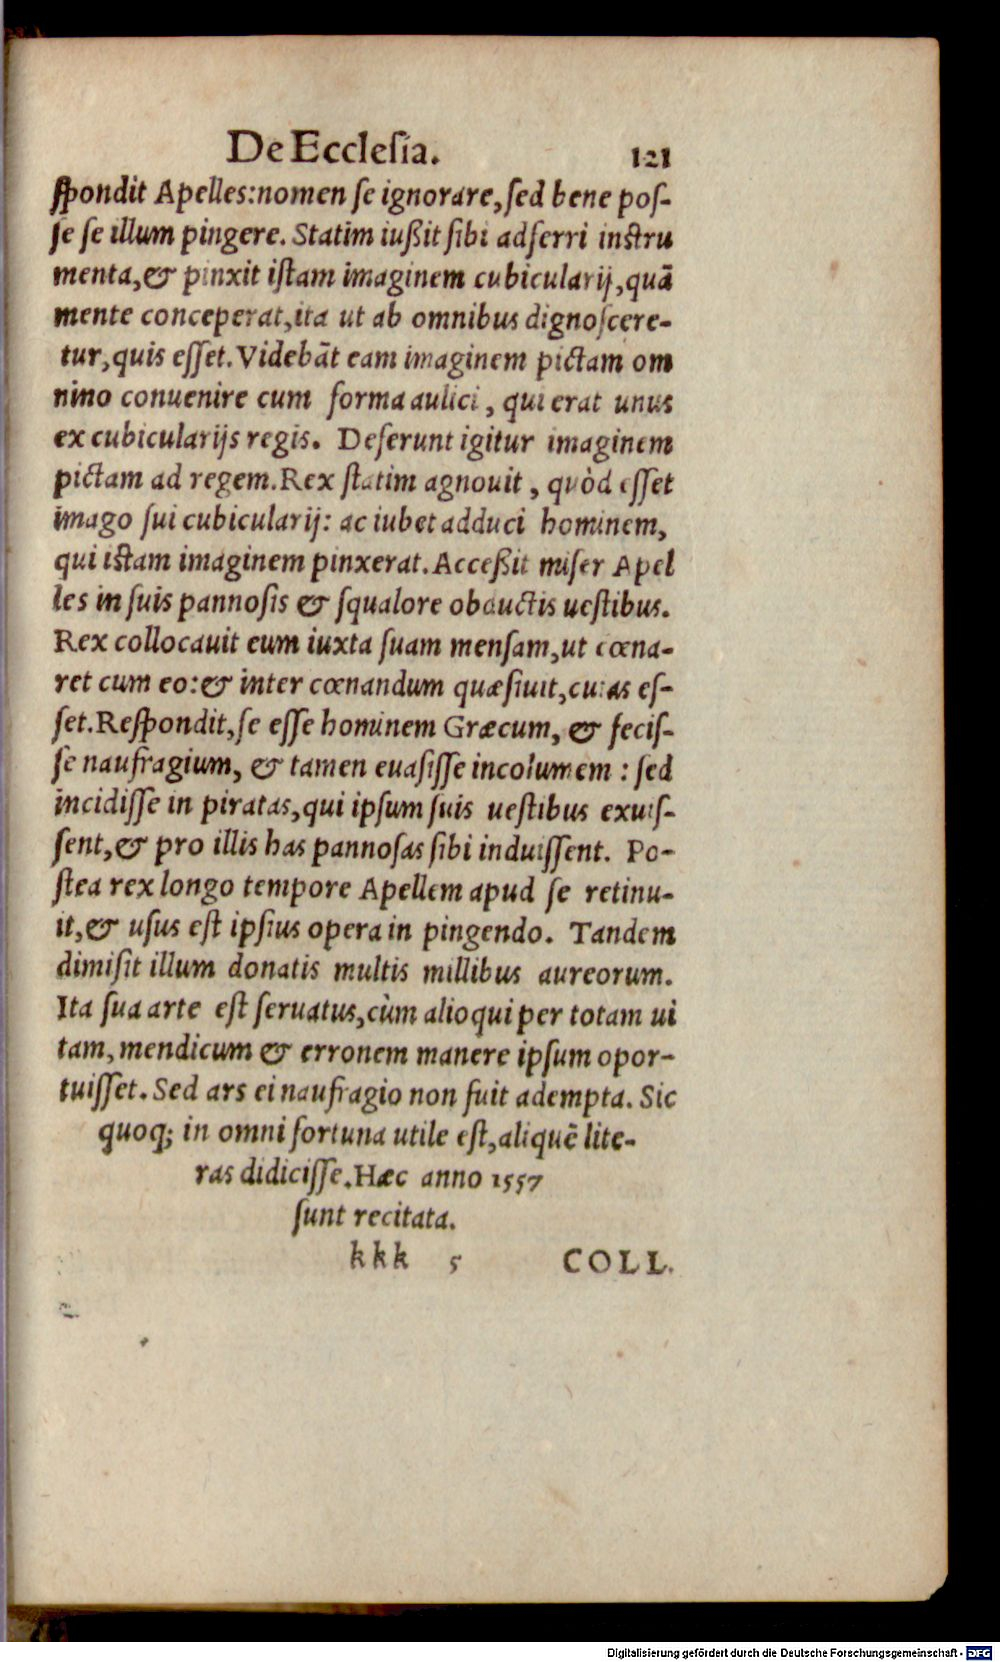 De Ecclesia. 121
ſpondit Apelles:nomen ſe ignorare,ſed bene poſ-
ſe ſe illum pingere. Statim iußit ſibi adferri inſtru
menta,& pinxit iſtam imaginem cubicularij,quā
mente conceperat,ita ut ab omnibus dignoſcere-
tur,quis eſſet.Videbāt eam imaginem pictam om
nino conuenire cum forma aulici, qui erat unus
ex cubicularijs regis. Deferunt igitur imaginem
pictam ad regem.Rex ſtatim agnouit, quòd eſſet
imago ſui cubicularij: ac iubet adduci hominem,
qui iſtam imaginem pinxerat.Acceßit miſer Apel
les in ſuis pannoſis & ſqualore obductis ueſtibus.
Rex collocauit eum iuxta ſuam menſam,ut cœna-
ret cum eo:& inter cœnandum quæſiuit,cuias eſ-
ſet.Reſpondit,ſe eſſe hominem Græcum, & feciſ-
ſe naufragium, & tamen euaſiſſe incolumem: ſed
incidiſſe in piratas,qui ipſum ſuis ueſtibus exuiſ-
ſent,& pro illis has pannoſas ſibi induiſſent. Po-
ſtea rex longo tempore Apellem apud ſe retinu-
it,& uſus eſt ipſius opera in pingendo. Tandem
dimiſit illum donatis multis millibus aureorum.
Ita ſua arte eſt ſeruatus,cùm alioqui per totam ui
tam, mendicum & erronem manere ipſum opor-
tuiſſet. Sed ars ei naufragio non fuit adempta. Sic
quoq; in omni fortuna utile eſt,aliquē lite-
ras didiciſſe.Hæc anno 1557
ſunt recitata.
kkk 5 COLL.
Digitalisierung gefördert durch die Deutsche Forschungsgemeinschaft - DFG